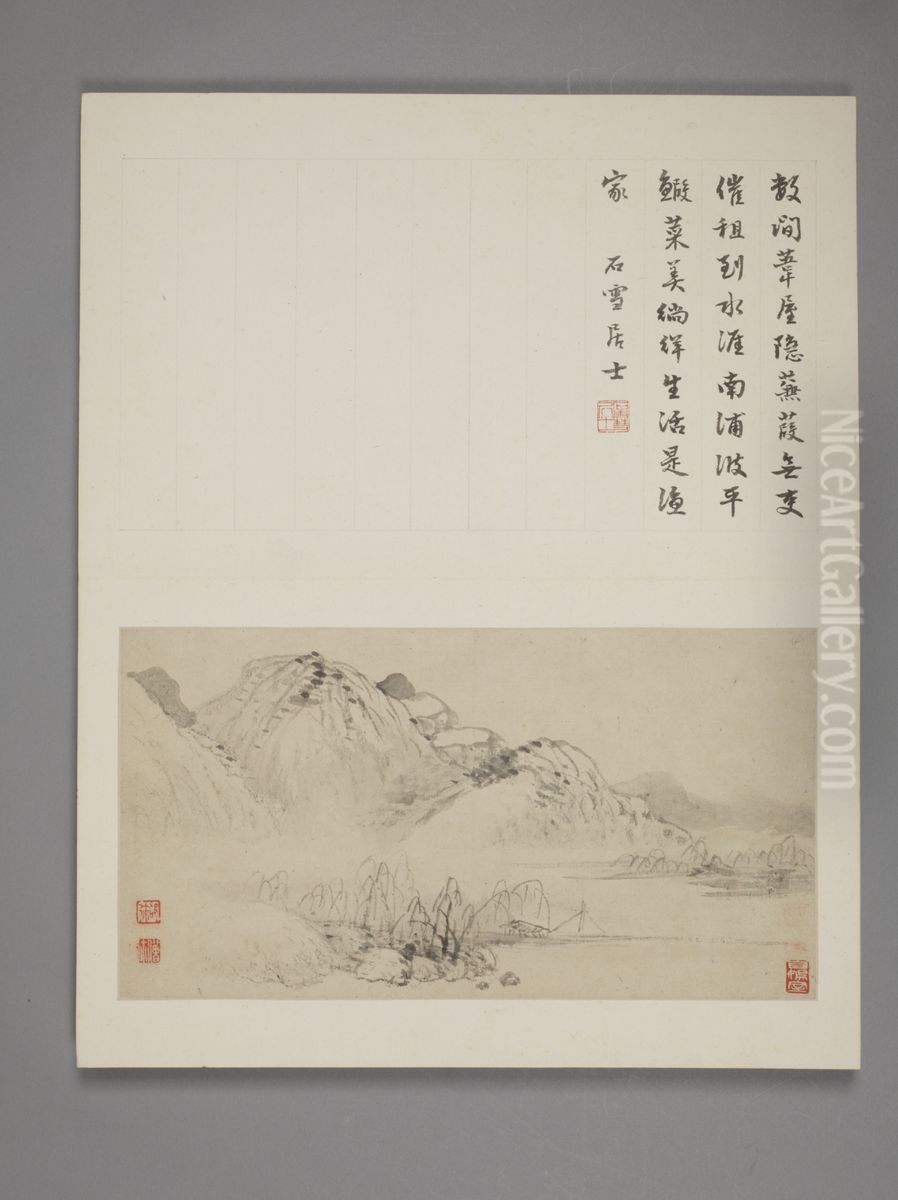 數間葦屋隱蒹葭無吏
催租到水涯南浦波平
鰕菜美徜徉生活是漁
家 石雪居士
NiceArtGallery.com